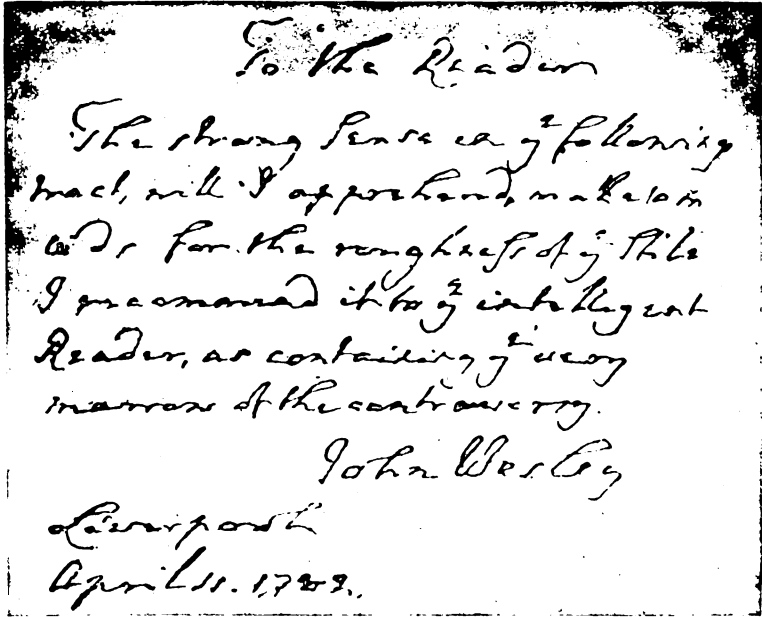 To the Reader
The strong Sense in yͤ following
tract, will I apprehend, make am
ends for the roughness of yͤ Stile
I recommend it to yͤ intelligent
Reader, as containing yͤ very
marrow of the controversy.
John Wesley
Liverpool
April 11.